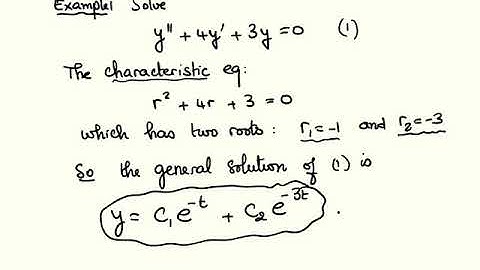 Example: Solve
y'' + 4y' + 3y = 0 (1)
The characteristic eq:
r² + 4r + 3 = 0
which has two roots: r₁=-1 and r₂=-3
So the general solution of (1) is
y = C₁e⁻ᵗ + C₂e⁻³ᵗ .